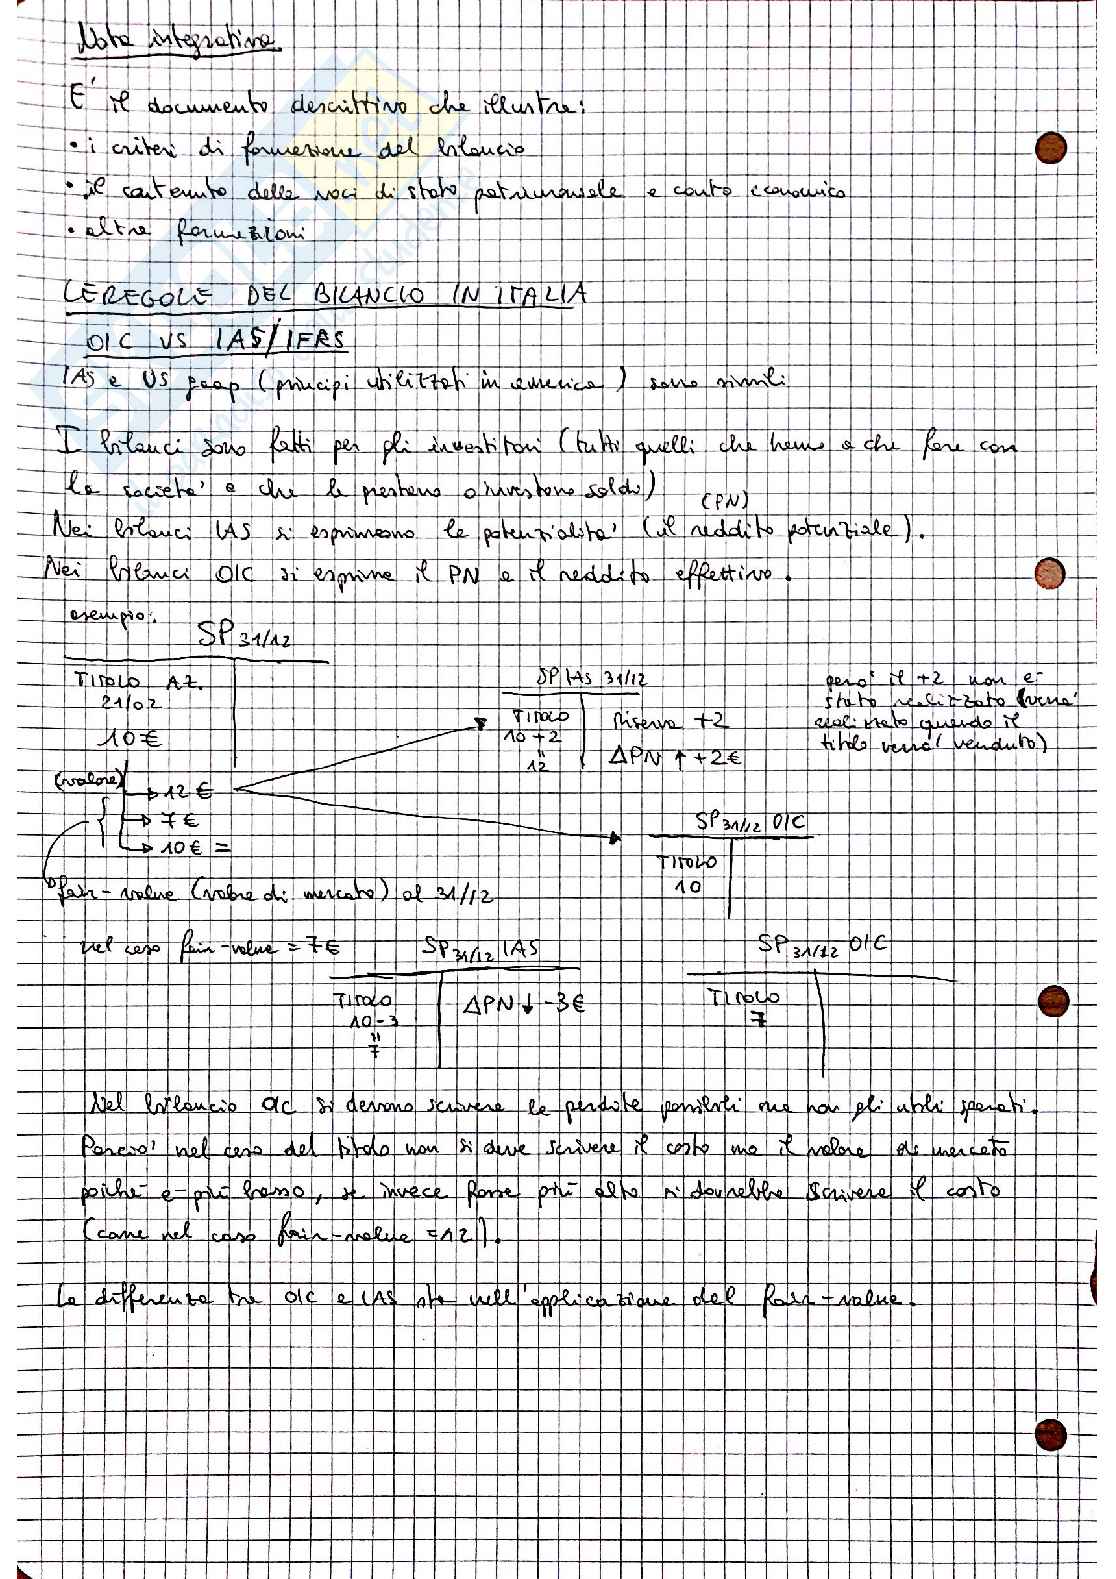 Nota integrativa
E' il documento descrittivo che illustra:
• i criteri di formazione del bilancio
• il contenuto delle voci di stato patrimoniale e conto economico
• altre formazioni
LE REGOLE DEL BILANCIO IN ITALIA
OIC VS IAS/IFRS
IAS e US gaap (principi utilizzati in america) sono simili
I bilanci sono fatti per gli investitori (tutti quelli che hanno a che fare con
la societa' e che le prestano o investono soldi)
(PN)
Nei bilanci IAS si esprimono le potenzialita' (il reddito potenziale).
Nei bilanci OIC si esprime il PN e il reddito effettivo.
esempio:
SP 31/12
TITOLO AZ.
21/02
10€
(valore)
12€
7€
10€ =
SP IAS 31/12
TITOLO
10+2
"
12
Riserva +2
ΔPN ↑ +2€
pero' il +2 non e'
stato realizzato (verra'
realizzato quando il
titolo verra' venduto)
SP 31/12 OIC
TITOLO
10
fair-value (valore di mercato) al 31/12
nel caso fair-value = 7€
SP 31/12 IAS
TITOLO
10-3
"
7
ΔPN ↓ -3€
SP 31/12 OIC
TITOLO
7
Nel bilancio OIC si devono scrivere le perdite possibili ma non gli utili sperati.
Percio' nel caso del titolo non si deve scrivere il costo ma il valore di mercato
poiche' e' piu' basso, se invece fosse piu' alto si dovrebbe scrivere il costo
(come nel caso fair-value =12).
La differenza tra OIC e IAS sta nell'applicazione del fair-value.